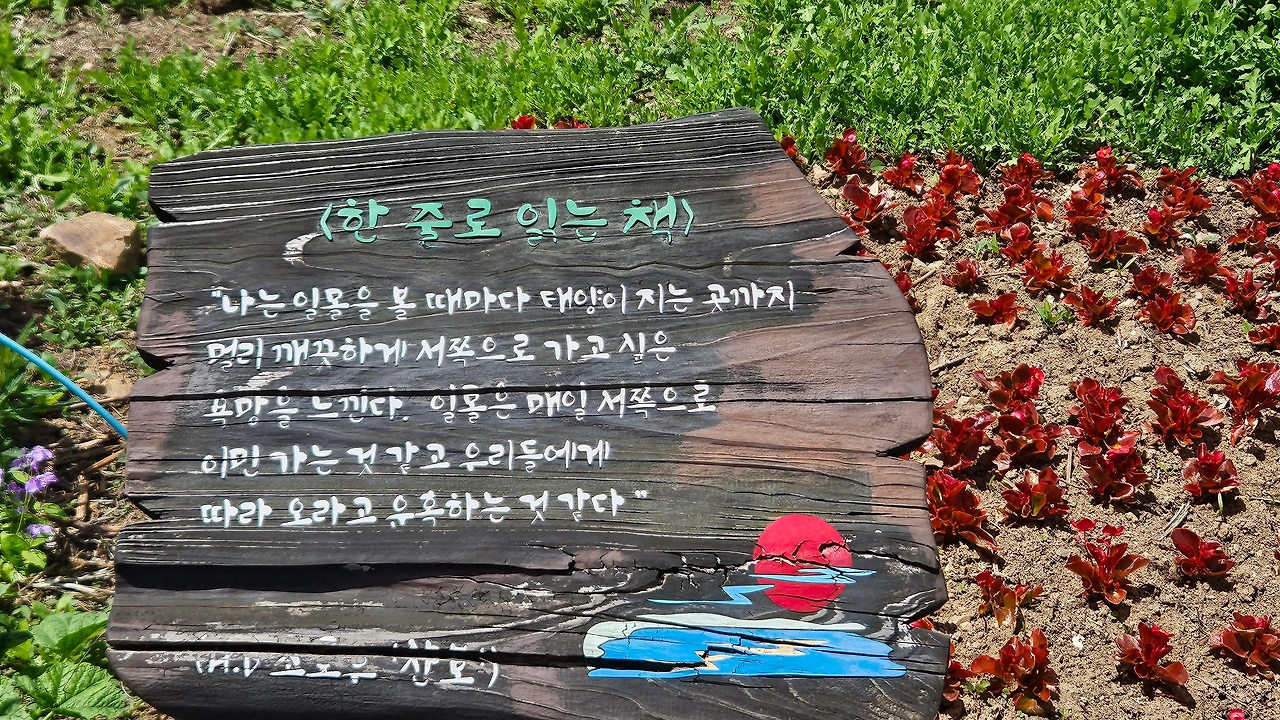 <한 줄로 읽는 책>
"나는 일몰을 볼 때마다 태양이 지는 곳까지
멀리 깨끗하게 서쪽으로 가고 싶은
욕망을 느낀다. 일몰은 매일 서쪽으로
이민 가는 것 같고 우리들에게
따라 오라고 유혹하는 것 같다"
(H.D 소로우 '산보')